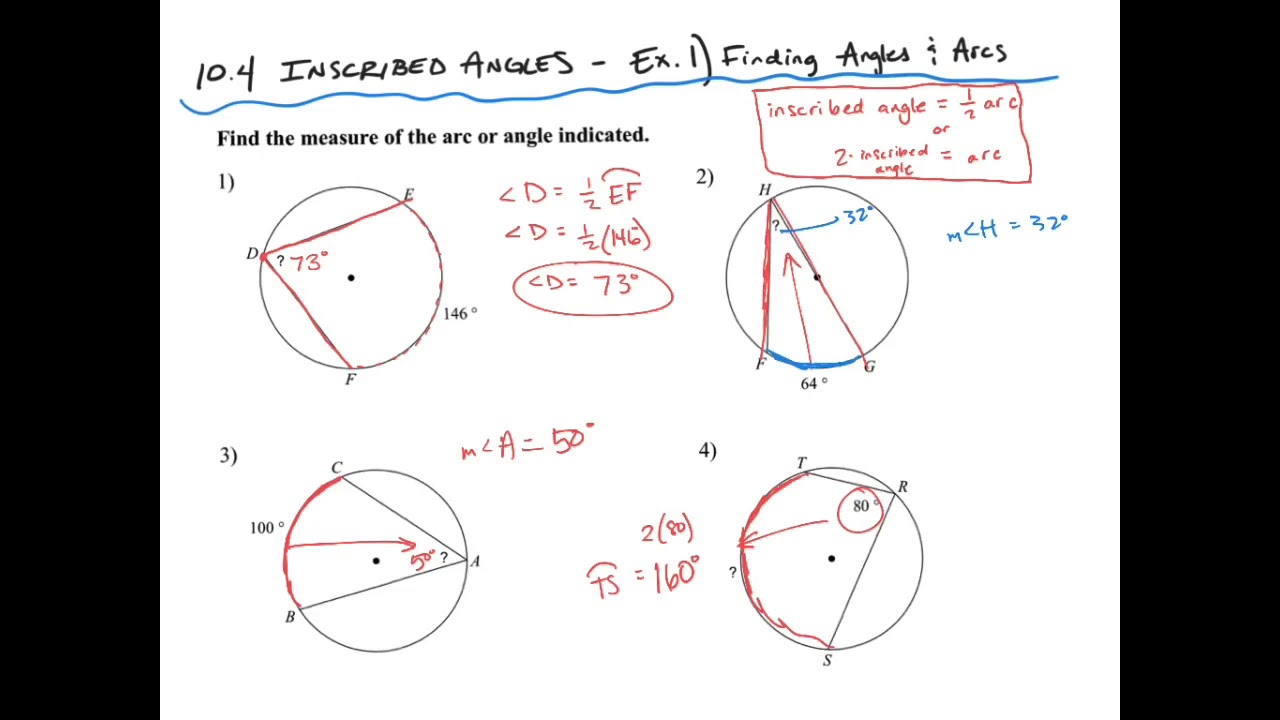 10.4 INSCRIBED ANGLES - Ex. 1) Finding Angles & Arcs
inscribed angle = 1/2 arc
or
2 · inscribed angle = arc
Find the measure of the arc or angle indicated.
1)
E
D
? 73°
146 °
F
<D = 1/2 EF
<D = 1/2 (146)
<D = 73°
2)
H
?
32°
m<H = 32°
F
G
64 °
3)
C
100 °
50° ?
A
B
m<A = 50°
4)
T
R
80 °
?
S
2(80)
TS = 160°